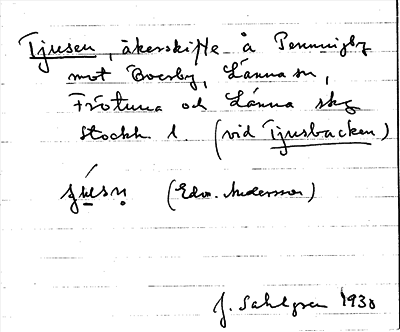 Tjusen, åkerskifte å Penningby
mot Boersby, Länna sn,
Frötuna och Länna skg
Stockh. l. (vid Tjusbacken)
(Edv. Andersson)
J. Sahlgren 1930